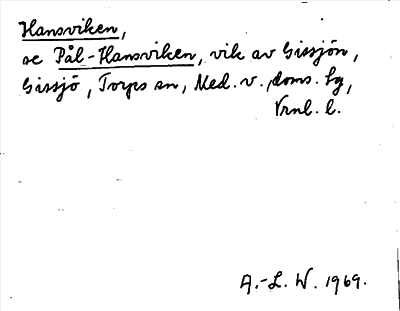 Hansviken,
se Pål-Hansviken, vik av Gissjön,
Gissjö, Torps sn, Med. v. doms. tg,
Vrnl. l.
A.-L. W. 1969.